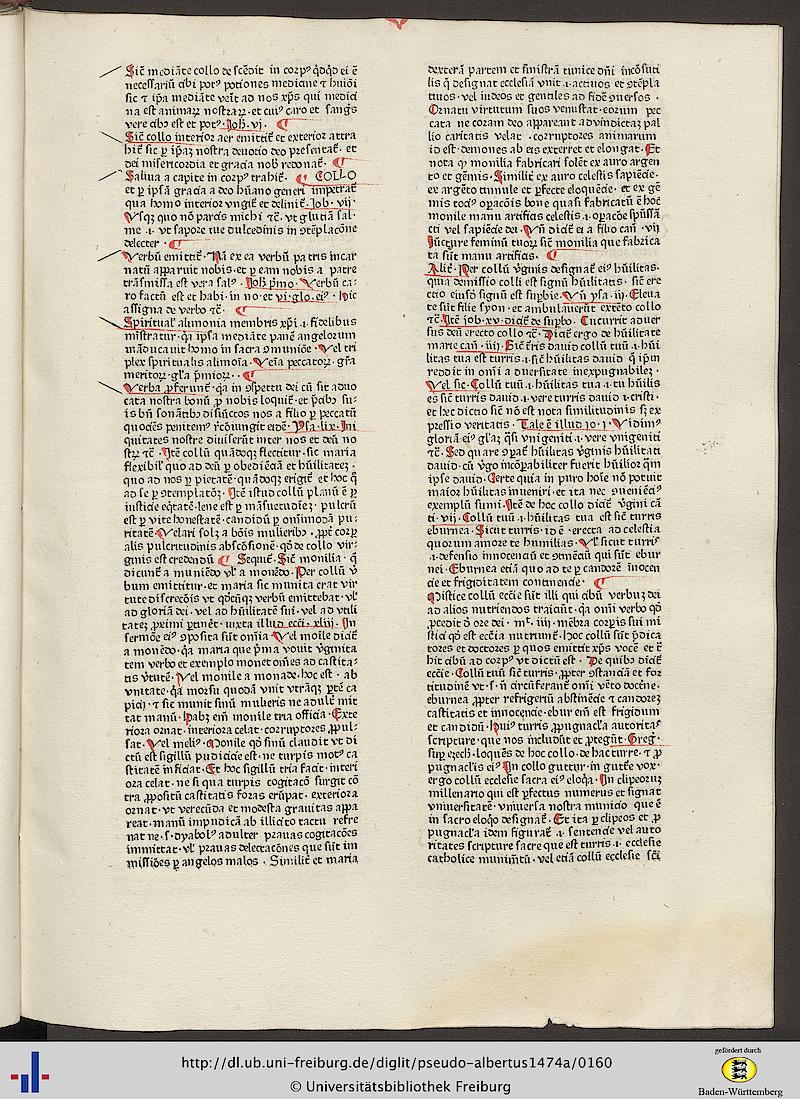 Sic̄ mediāte collo descēdit in corpꝰ qͥdqͥd ei ē
necessariū cibi potꝰ potiones medicine ⁊ huiōi
sic ⁊ ip̄a mediāte veīt ad nos xp̄s qui medici
na est animaꝝ nostraꝝ· et cuiꝰ caro et sangs
vere cibꝰ est et potꝰ· Joh̄· vj ·
Sic̄ collo interior aer emittit᷑ et exterior attra
hit᷑ sic ꝑ ip̄aꝫ nostra deuotio deo presentat᷑· et
dei misericordia et gracia nob̄ redonat᷑·
Saliua a capite in corpꝰ trahit᷑· COLLO
et ꝑ ip̄sā gracia a deo hūano generi impetrat᷑
qua homo interior vngit᷑ et delinit᷑· Job · vij ·
Vsqꝫ quo nō parcis michi ⁊c̄· vt glutiā sal·
me ·i· vt sapore tue dulcedinis in ↄtēplacōne
delecter ·
Verbū emittit᷑ · Nā ex ea verbū patris incar
natū apparuit nobis· et ꝑ eam nobis a patre
trāsmissa est vera salꝰ · Joh̄ p̄mo· Verbū ca·
ro factū est et habi· in no· et vi· glo· eiꝰ · hic
assigna de verbo ⁊c̄·
Spiritual᷑ alimonia membris xp̄i ·i· fidelibus
mistratur· qꝛ ip̄sa mediāte panē angelorum
māducauit homo in sacra ↄmunióe · Vel tri
plex spiritualis alimoīa · Veīa peccatoꝝ· gr̄a
meritoꝝ· gl̄a p̄mioꝝ·
Verba ꝓferunt᷑ · qꝛ in ↄspettu dei cū sit aduo
cata nostra bonū ꝑ nobis loquit᷑· et p̄cibꝰ su·
is bn̄ sonātibꝰ disiūctos nos a filio ꝑ peccatū
quociēs penitemꝰ recōiungit eidē· Psa · lix· Ini
quitates nostre diuiserūt inter nos et deū no
stꝝ ⁊c̄· Itē collū quādoqꝫ flectitur· sic maria
flexibil᷑ quo ad deū ꝑ obediēciā et hūilitateꝫ ·
quo ad nos ꝑ pietatē· quādoqꝫ erigit᷑ et hoc ꝙ
ad se ꝑ ↄtemplatōꝫ· Itē istud collū planū ē ꝑ
iusticie eqͥtatē· lene est ꝑ māsuetudieꝫ· pulcrū
est ꝑ vite honestatē· candidū ꝑ oīmodā pu·
ritatē· Velari solꝫ a bōis mulieribꝰ · ꝓpt̄ corꝑ
alis pulcritudinis abscōsionē· qd̄ de collo vir·
ginis est credendū Sequit᷑· Sic̄ monilia · ꝙ
dicunt᷑ a muniēdo vl᷑ a monēdo· Per collū v̄
bum emittitur· et maria sic munita erat vir
tute discrecōis vt qd̄cūqꝫ verbū emittebat· vl᷑
ad gloriā dei · vel ad hūilitatē sui· vel ad vtili
tateꝫ ꝓximi ꝑtinēt· iuxta illud ecci· xliij· In
sermōe eiꝰ ↄposita sūt oīnia· Vel moīle dicit᷑
a monēdo· qꝛ maria que p̄ma vouit v̄ginita
tem verbo et exemplo monet om̄es ad castita·
tis v̄tutē· Vel monile a monade· hoc est · ab
vnitate· qꝛ morsu quodā vnit vtrāqꝫ ꝑtē ca
picij · ⁊ sic munit sinū mulieris ne adult᷑ mit
tat manū· Habꝫ eīn monile tria officia · Exte
riora ornat· interiora celat· corruptores ꝓpul·
sat· Vel meliꝰ· Monile qd̄ sinū claudit vt di
ctū est sigillū pudicicie est· ne turpis motꝰ ca
stitatē inficiat· Et hoc sigillū tria facit· interi
ora celat· ne si qua turpis cogitacō surgit cō
tra ꝓpositū castitatis foras erūpat· exteriora
ornat· vt verecūda et modesta grauitas appa
reat· manū impudicā ab illicito tactu refre
nat ne ·s· dyabolꝰ adulter prauas cogitacōes
immittat· vl᷑ prauas delectacōnes que sūt im
missiões ꝑ angelos malos · Similit᷑ et maria
dexterā partem et sinistrā tunice dn̄i incōsuti
lis ꝙ designat ecclesiā vnit ·i· actiuos et ↄtēpla
tiuos· vel iudeos et gentiles ad fidē ↄuersos ·
Ornatu virtutum suos venustat· eorum pec
cata ne coram deo appareant ad vindictaꝫ pal
lio caritatis velat · corruptores animarum
id est· demones ab eis exterret et elongat· Et
nota ꝙ monilia fabricari solēt ex auro argen
to et gēmis· Similit᷑ ex auro celestis sapiēcie·
ex argēto tinnule et ꝑfecte eloquēcie· et ex gē
mis tociꝰ oꝑacōis bone quasi fabricatū ē hoc
monile manu artificis celestis ·i· oꝑacōe sp̄ussā
cti vel sapiēcie dei · Vn̄ dicit᷑ ei a filio cań · vij
Jūcture feminū tuoꝝ sic̄ monilia que fabrica
ta sūt manu artificis·
Alit᷑· Per collū v̄ginis designat᷑ eiꝰ hūilitas·
quia demissio colli est signū hūilitatis· sic̄ ere
ctio eiusdē signū est suꝑbie· Vn̄ ysa ·iij· Eleua
te sūt filie syon· et ambulauerūt extēto collo
⁊c̄· Itē iob· xv· dicit᷑ de suꝑbo· Cucurrit aduer
sus deū erecto collo ⁊c̄· Dicit᷑ ergo de hūilitate
marie cań · iiij· Sic̄ tris dauid collū tuū ·i· hūi
litas tua est turris ·i· sic̄ hūilitas dauid ꝙ ip̄m
reddit in om̄i aduersitate inexpugnabileꝫ ·
Vel sic· Collū tuū ·i· hūilitas tua ·i· tu hūilis
es sic̄ turris dauid ·i· vere turris dauid ·i· cristi ·
et hec dictio sic̄ nō est nota similitudinis sꝫ ex
pressio veritatis · Tale ē illud io · j· Vidimꝰ
gloriā eiꝰ gl̄aꝫ qͣsi vnigeniti ·i· vere vnigeniti
⁊c̄· Sed quare ↄꝑat᷑ hūilitas v̄ginis hūilitati
dauid· cū v̄go incōꝑabiliter fuerit hūilior qͣm
ipse dauid· Certe quia in puro hoīe nō potuit
maior hūilitas inueniri· et ita nec ↄueniēciꝰ
exemplū sumi· Itē de hoc collo dicit᷑ v̄gini cā
ti· vij· Collū tuū ·i· hūilitas tua est sic̄ turris
eburnea· Sicut turris· id ē · erecta ad celestia
quorum amore te humilias· Vl᷑ sicut turris
·i· defensio innocenciū et ↄtinēciū qui sūt ebur
nei · Eburnea etiā quo ad te ꝑ candorē inocen
cie et frigiditatem continencie·
Mistice collū eccl̄ie sūt illi qui cibū verbuꝫ dei
ad alios nutriendos traiciūt· qꝛ om̄i verbo qd̄
ꝓcedit d̄ ore dei · mt̄· iiij· mēbra corpis sui mi
stici qd̄ est eccl̄ia nutriunt᷑· hoc collū sūt p̄dica
tores et doctores ꝑ quos emittit xp̄s vocē et t᷑
hit cibū ad corpꝰ vt dictū est · De quibꝰ dicit᷑
eccl̄ie· Collū tuū sic̄ turris· ꝓpter ↄstanciā et for
titudinē vt ·s· n̄ circūferant᷑ om̄i vēto doctr̄ne·
eburnea ꝓpter refrigeriū abstinēcie ⁊ candoreꝫ
castitatis et innocencie· ebur eīn est frigidum
et candidū · Huiꝰ turris ꝓpugnacl̄a autoritaꝰ
scripture· que nos includūt et ꝓtegūt· Greḡ·
suꝑ ezech̄· loquēs de hoc collo· de hac turre· ⁊ ꝓ
pugnacl̄is eiꝰ· In collo guttur· in gutt᷑e vox·
ergo collū ecclesie sacra eiꝰ eloqͥa · In clipeoruꝫ
millenario qui est ꝑfectus numerus et signat
vniuersitatē· vniuersa nostra municio que ē
in sacro eloqͥo designat᷑· Et ita ꝑ clipeos et ꝓ
pugnacl̄a idem figurat᷑ ·i· sentencie vel auto
ritates scripture sacre que est turris ·i· ecclesie
catholice munim̄tū · vel etiā collū ecclesie sc̄i
http://dl.ub.uni-freiburg.de/diglit/pseudo-albertus1474a/0160
© Universitätsbibliothek Freiburg
gefördert durch
Baden-Württemberg